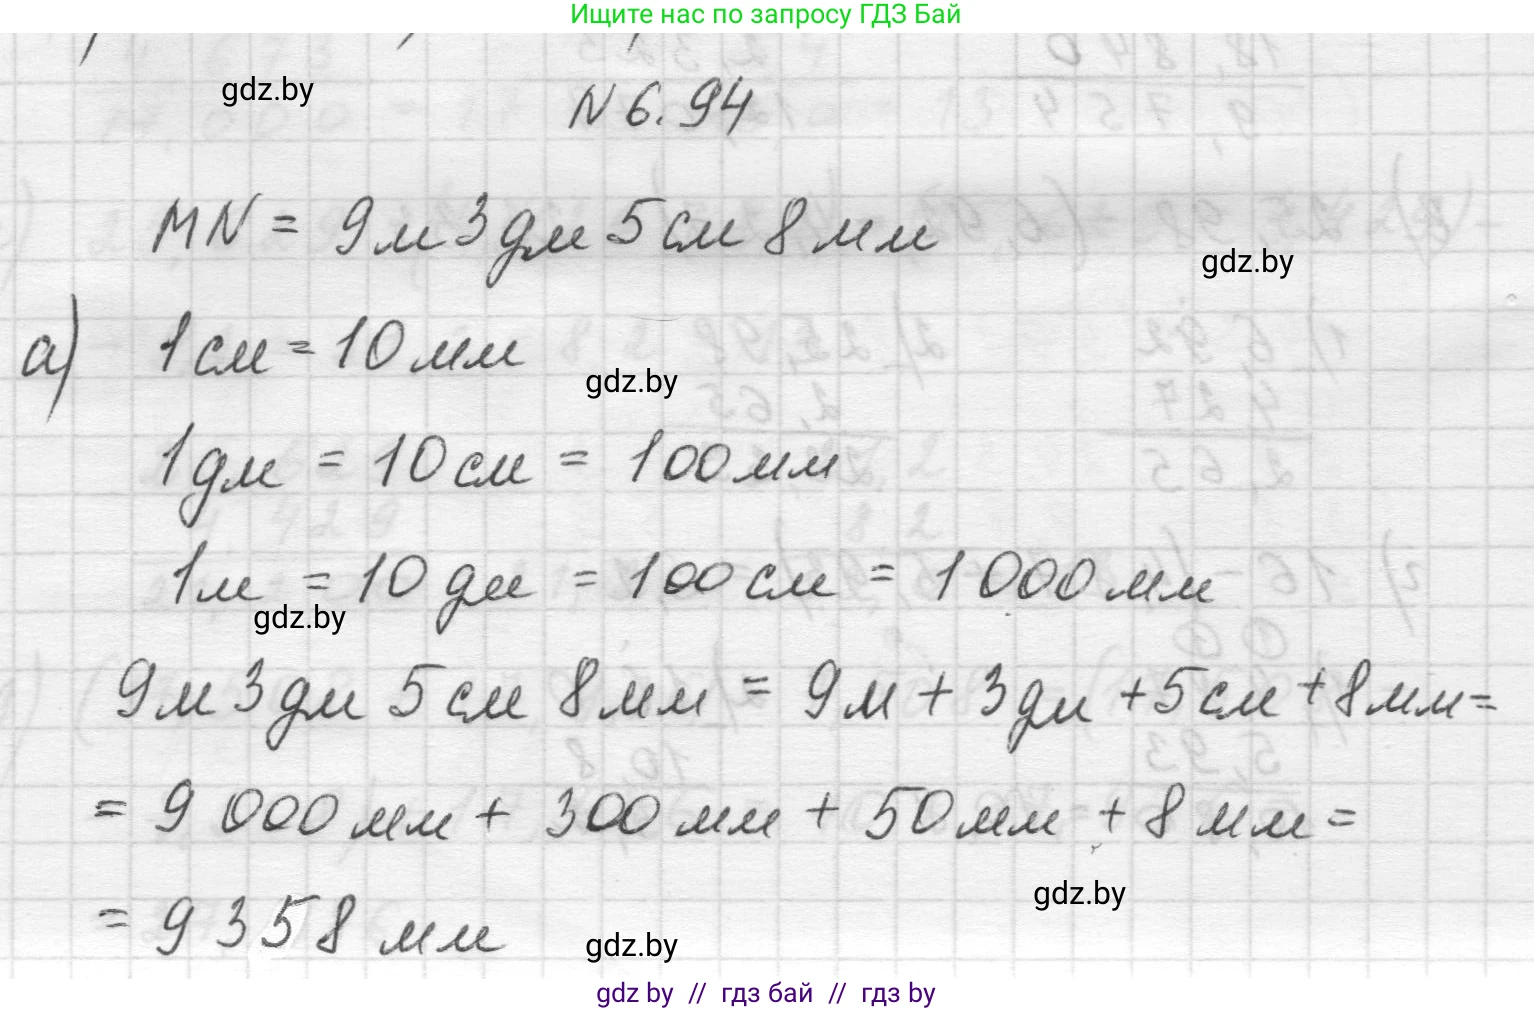 Ищите нас по запросу ГДЗ Бай
gdz.by
N 6.94
MN = 9м 3дм 5см 8мм
gdz.by
а) 1см = 10мм
gdz.by
1дм = 10см = 100мм
1м = 10дм = 100см = 1000мм
gdz.by
9м 3дм 5см 8мм = 9м + 3дм + 5см + 8мм =
= 9 000мм + 300мм + 50мм + 8мм =
gdz.by
= 9 358 мм
gdz.by
gdz by // гдз бай // гдз by